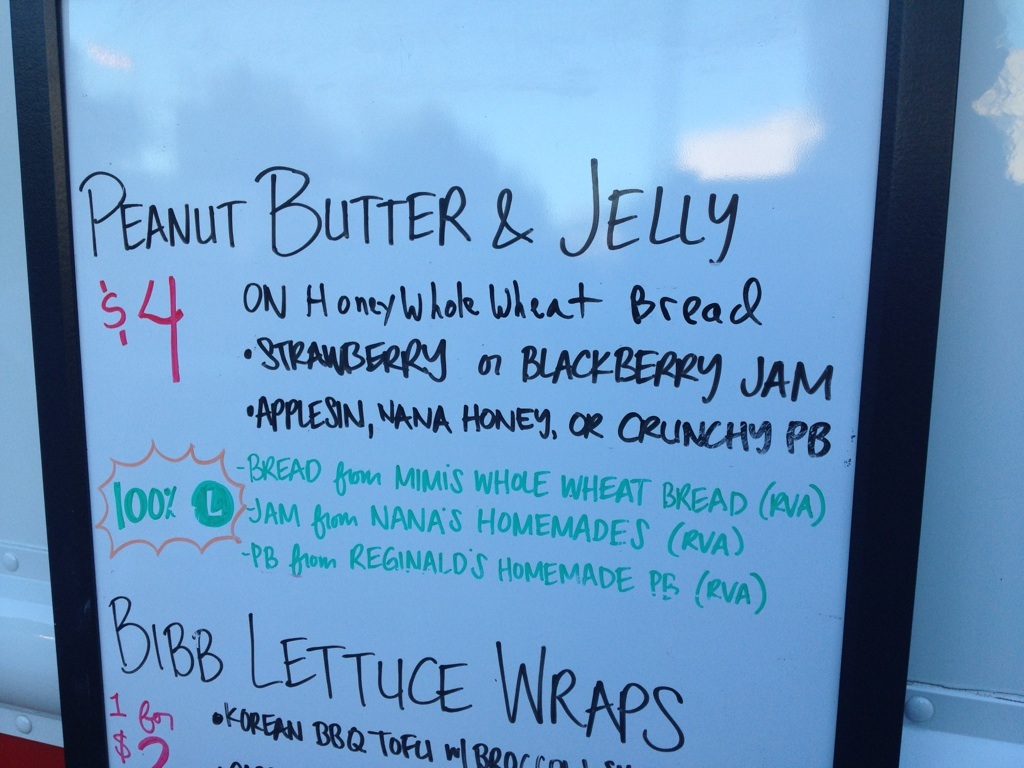 PEANUT BUTTER & JELLY
$4
ON Honey Whole Wheat Bread
•STRAWBERRY or BLACKBERRY JAM
•APPLESIN, NANA HONEY, OR CRUNCHY PB
100% L
-BREAD from MIMIS WHOLE WHEAT BREAD (RVA)
-JAM from NANA'S HOMEMADES (RVA)
-PB from REGINALD'S HOMEMADE PB (RVA)
BIBB LETTUCE WRAPS
1 for
$2
•KOREAN BBQ TOFU w/ BROCCOLI